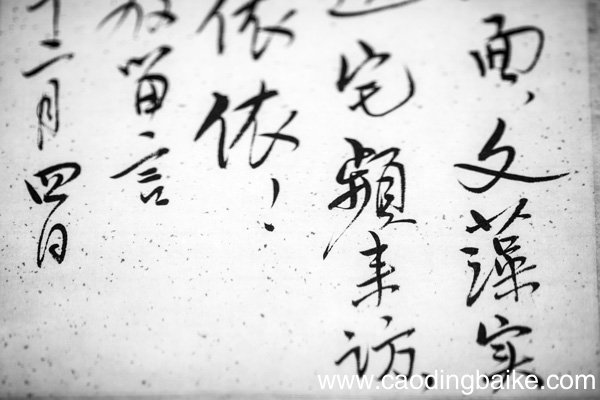 面，文藻实
宅频来访
依依！
留言
十二月四日
www.caodingbaike.com